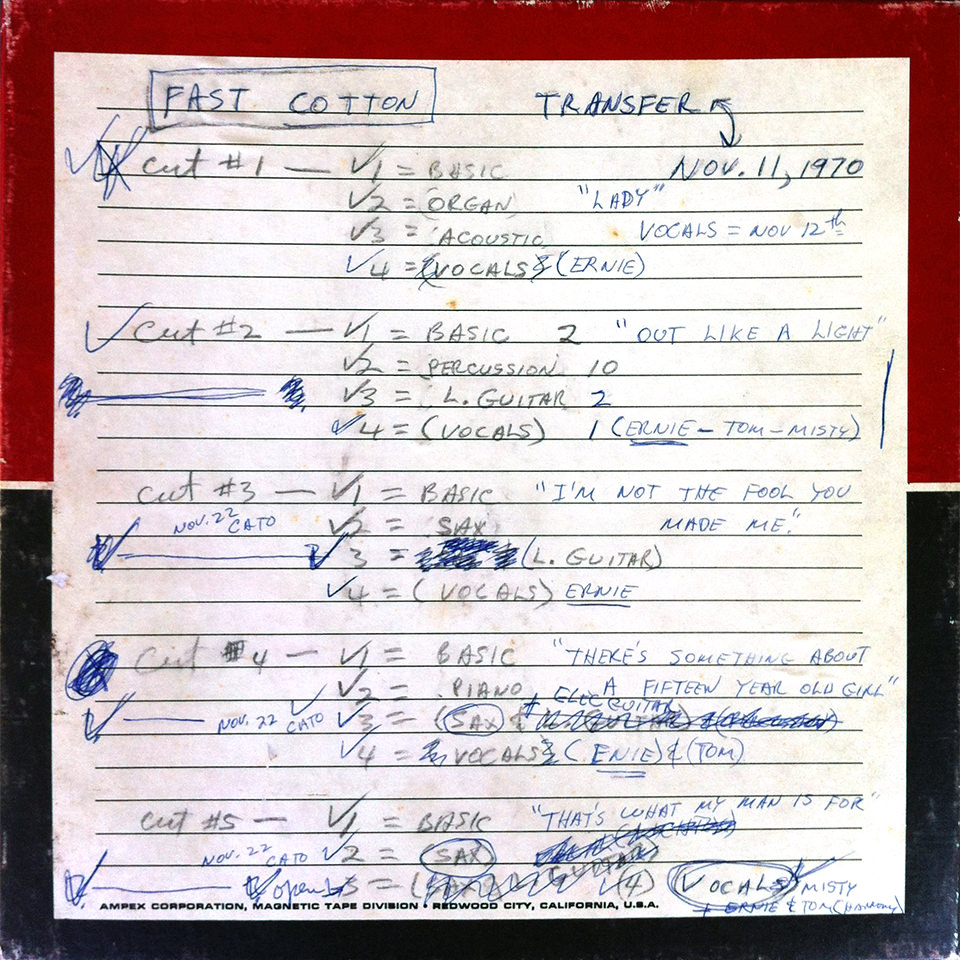 FAST COTTON TRANSFER
Cut #1 — √1 = BASIC NOV. 11, 1970
√2 = (ORGAN) "LADY"
√3 = ACOUSTIC VOCALS = NOV 12th
√4 = (VOCALS & (ERNIE)
√ Cut #2 — √1 = BASIC 2 "OUT LIKE A LIGHT"
√2 = PERCUSSION 10
√3 = L. GUITAR 2
√4 = (VOCALS) 1 (ERNIE – TOM – MISTY)
Cut #3 — √1 = BASIC "I'M NOT THE FOOL YOU
NOV. 22 CATO √2 = SAX MADE ME."
√ 3 = (L. GUITAR)
√4 = (VOCALS) ERNIE
Cut #4 — √1 = BASIC "THERE'S SOMETHING ABOUT
√2 = PIANO A FIFTEEN YEAR OLD GIRL"
+ ELEC GUITAR
√ — NOV. 22 CATO √3 = (SAX) &
√4 = VOCALS & (ENIE) & (TOM)
Cut #5 — √1 = BASIC "THAT'S WHAT MY MAN IS FOR"
NOV. 22 CATO √2 = (SAX)
open 3 = √(4) (VOCALS) MISTY
+ ERNIE & TOM (HARMONY)
AMPEX CORPORATION, MAGNETIC TAPE DIVISION • REDWOOD CITY, CALIFORNIA, U.S.A.